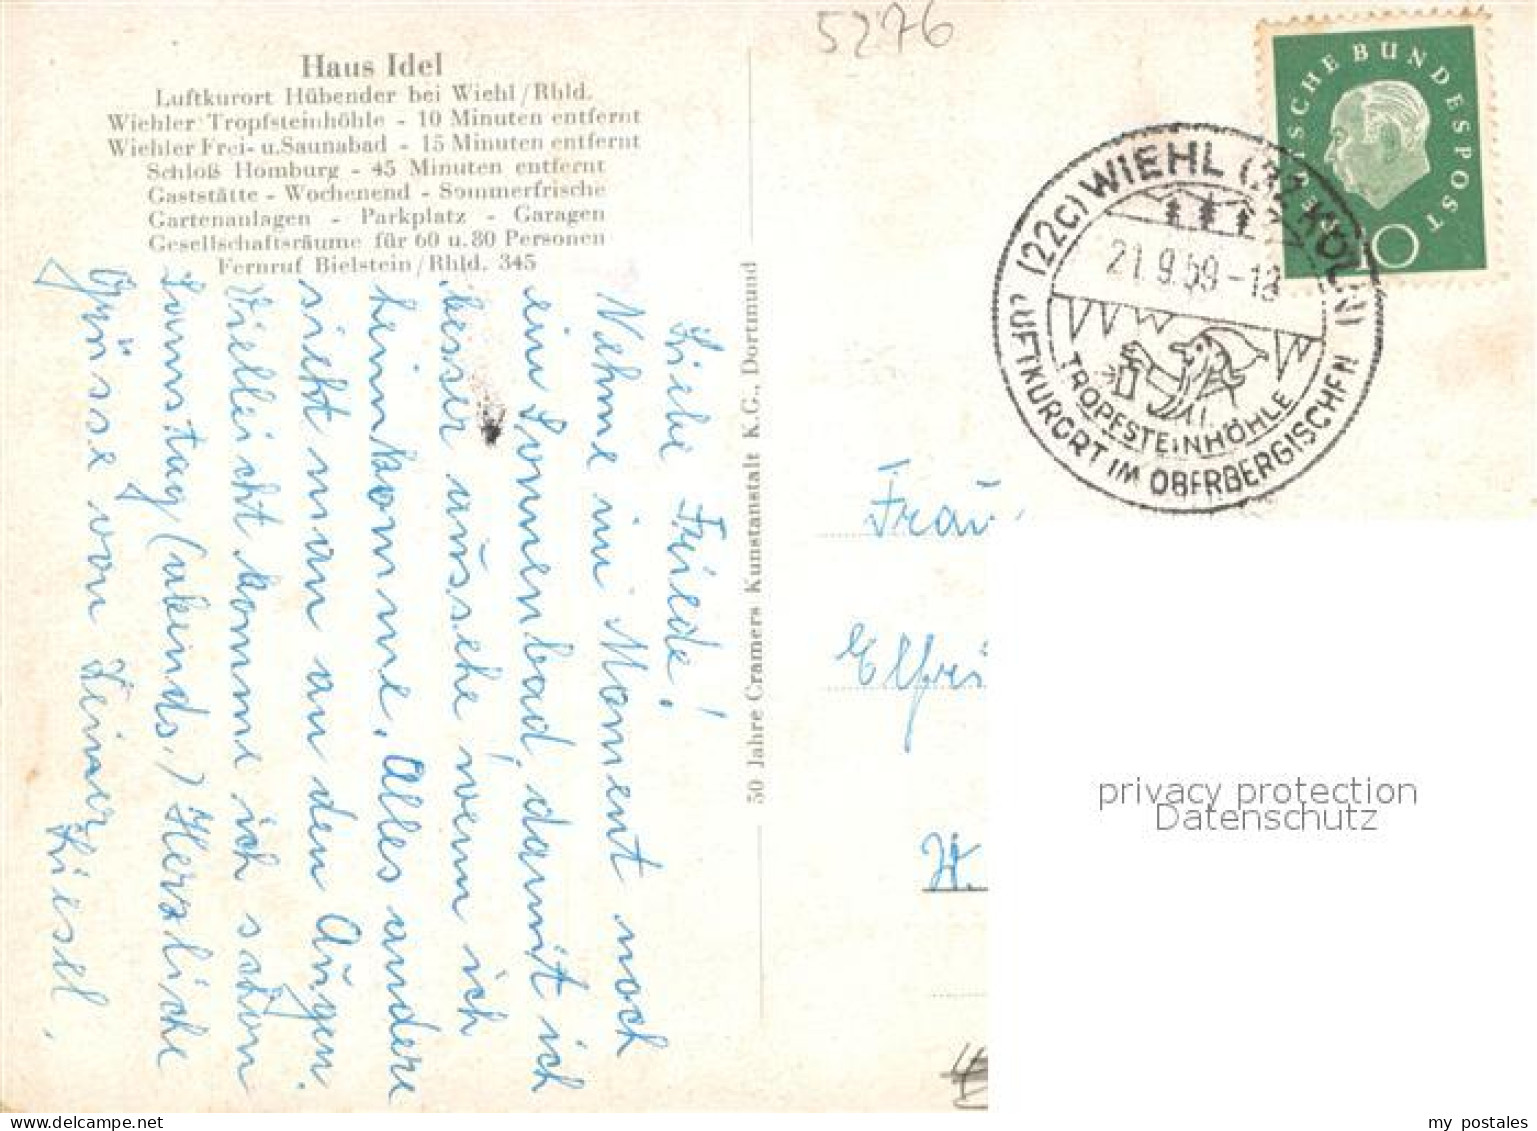 Haus Idel
Luftkurort Hübender bei Wiehl/Rhld.
Wiehler Tropfsteinhöhle - 10 Minuten entfernt
Wiehler Frei- u. Saunabad - 15 Minuten entfernt
Schloß Homburg - 45 Minuten entfernt
Gaststätte - Wochenend - Sommerfrische
Gartenanlagen - Parkplatz - Garagen
Gesellschaftsräume für 60 u. 80 Personen
Fernruf Bielstein/Rhld. 345
Liebe Friede!
Nehme im Moment noch
ein Sonnenbad, damit ich
besser aussehe, wenn ich
heimkomme. Alles andere
sieht man an den Augen.
Vielleicht komme ich schon
Samstag (abends.) Herzliche
Grüsse von Deiner
Liesel.
50 Jahre Cramers Kunstanstalt K.G., Dortmund
5276
DEUTSCHE BUNDESPOST
10
(22c) WIEHL (BZ KÖLN)
21.9.59-18
TROPFSTEINHÖHLE
LUFTKURORT IM OBERBERGISCHEN
Frau
Elfri
H.
privacy protection
Datenschutz
my postales